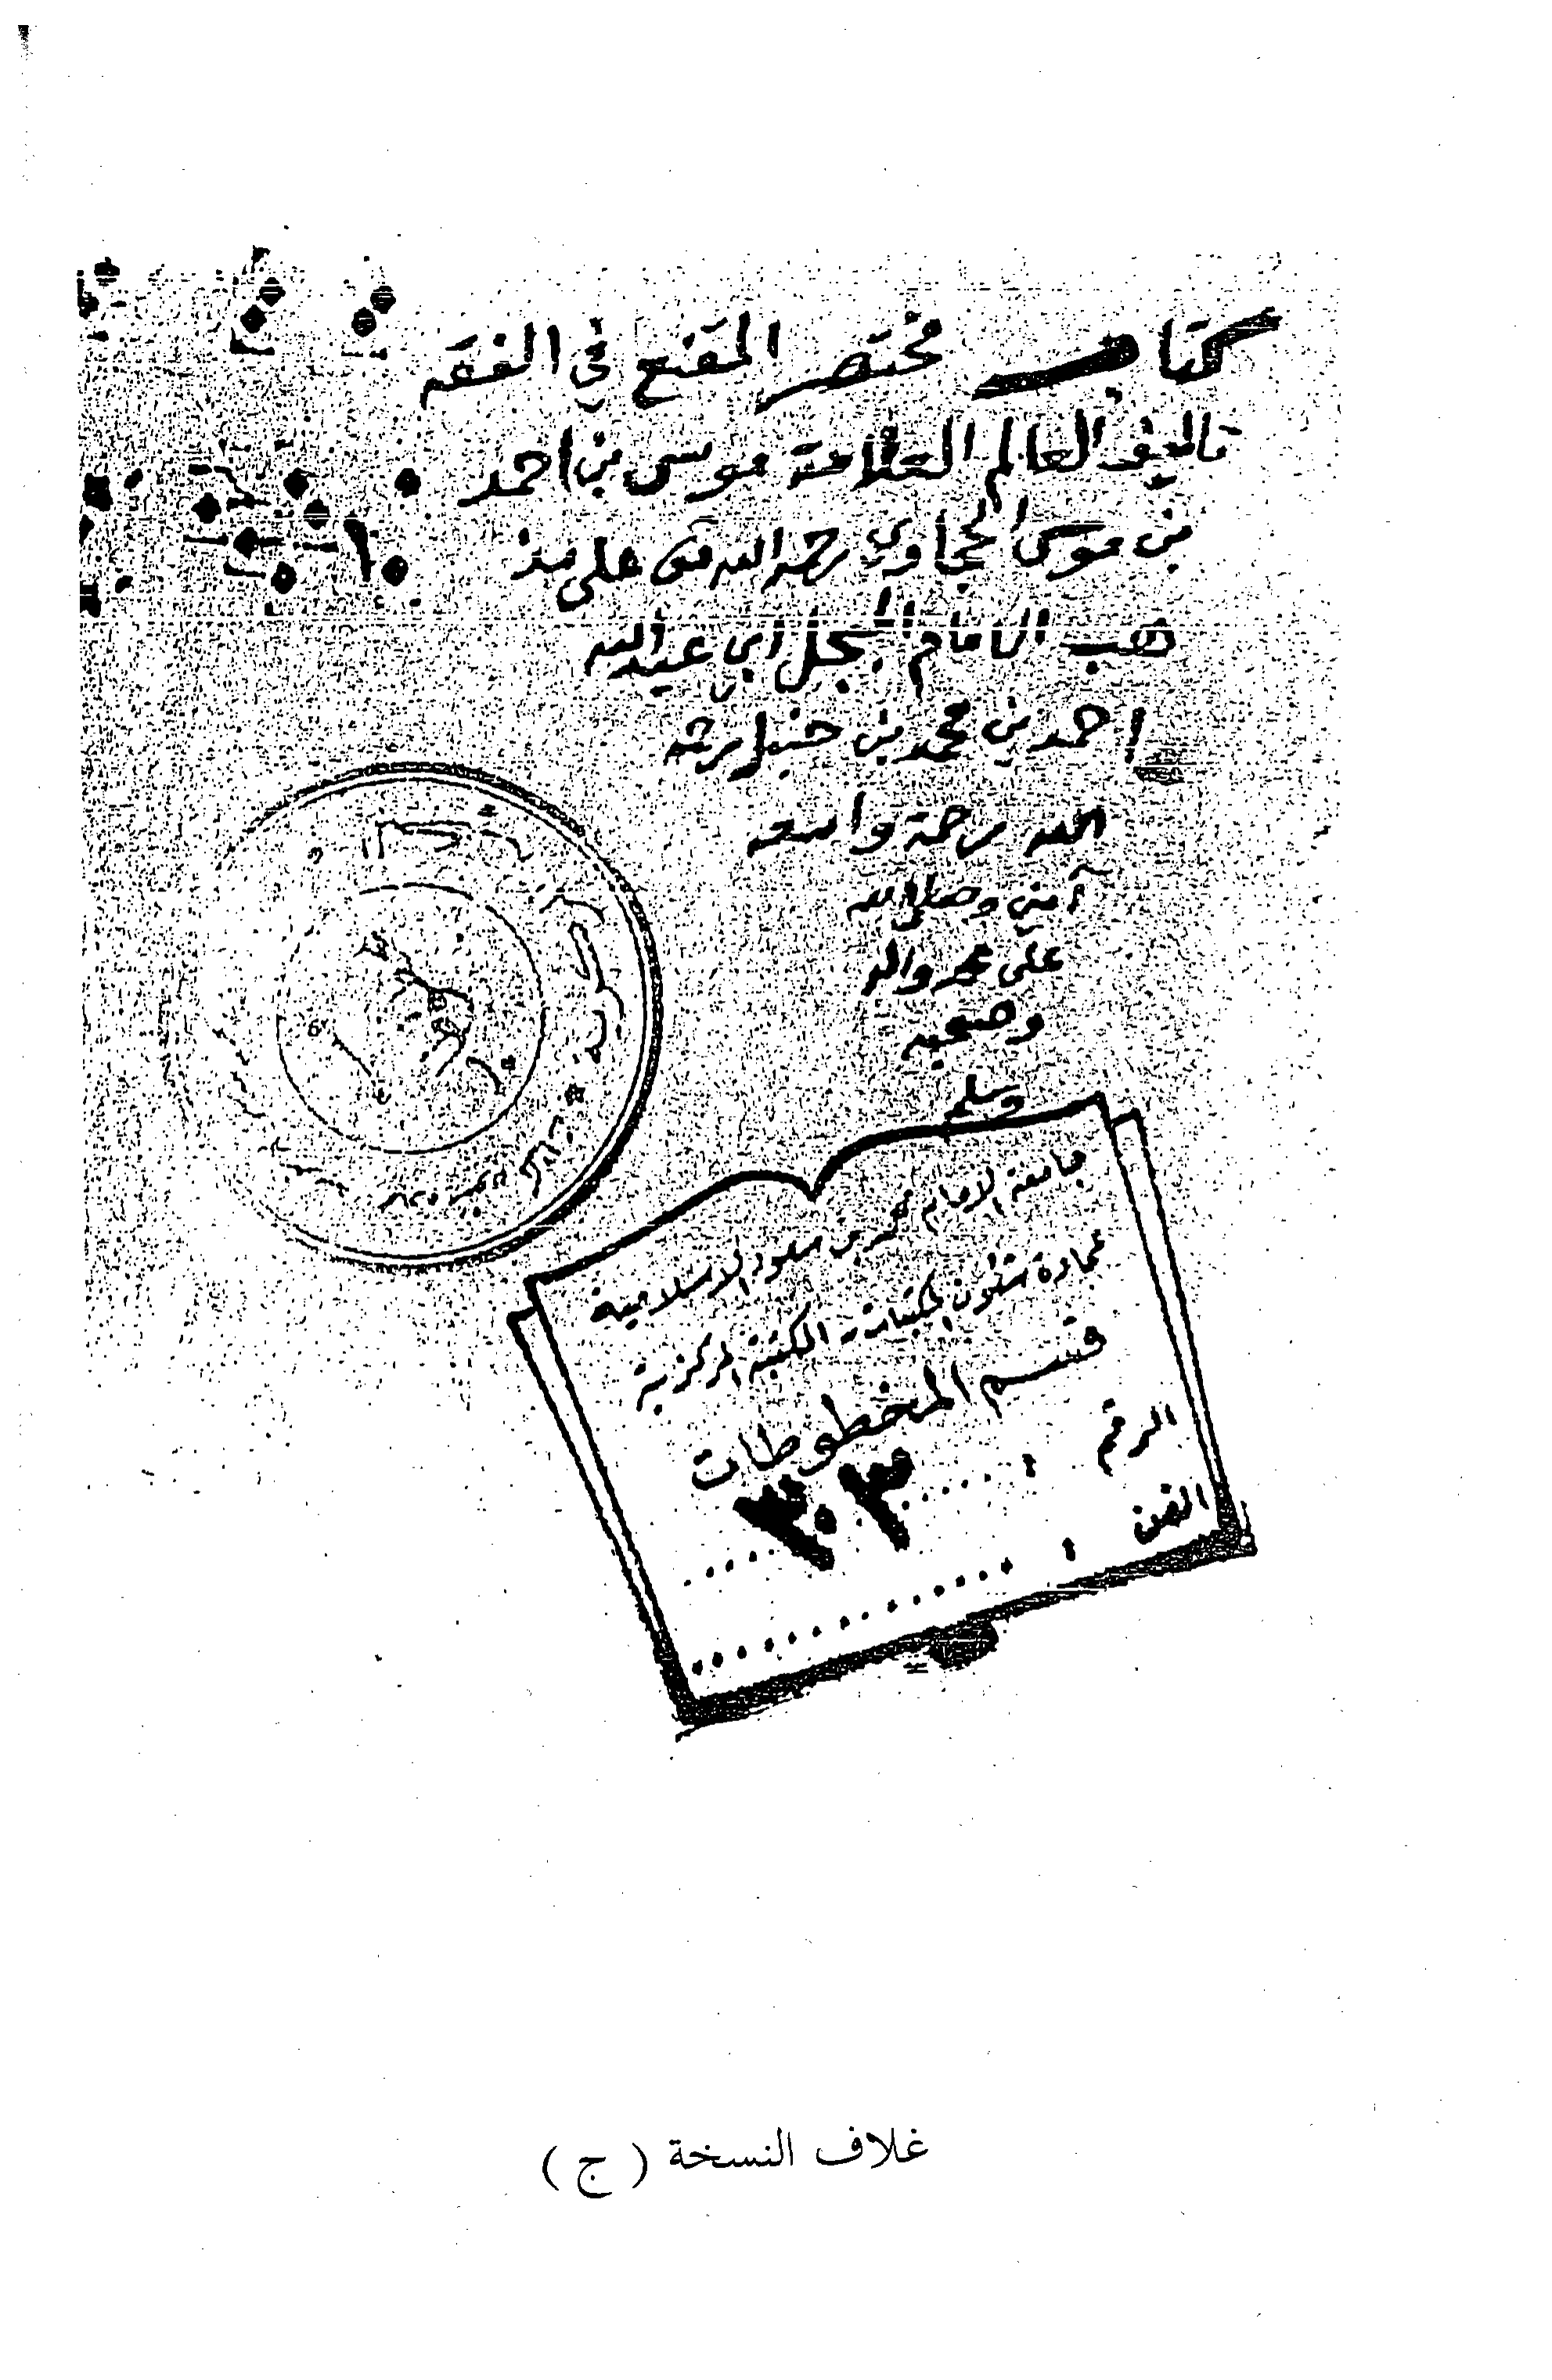 كتاب مختصر المقنع في الفقه
تاليف العالم العلامة موسى بن احمد
بن موسى الحجاوي رحمه الله تعى على مذ
هب الامام المبجل ابي عبد الله
احمد بن محمد بن حنبل رحمه
الله رحمة واسعه
آمين وصلى الله
على محمد واله
وصحبه
وسلم
جامعة الامام محمد بن سعود الاسلامية
عمادة شئون المكتبات - المكتبة المركزية
قسم المخطوطات
الرقم : ٣٠٣
الفن :
غلاف النسخة ( ج )